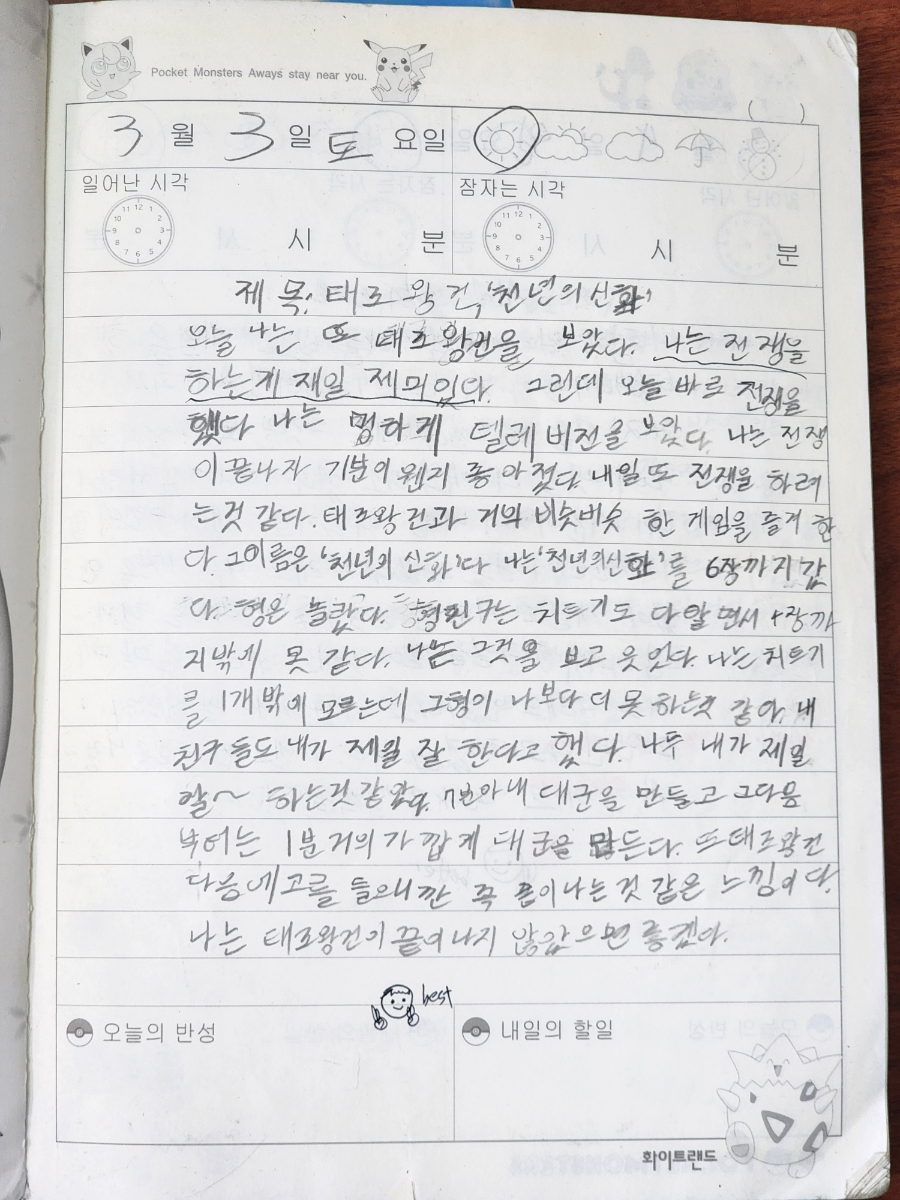 Pocket Monsters Aways stay near you.
3 월 3 일 토 요일
일어난 시각
잠자는 시각
시 분
시 분
제 목: 태조 왕 건, '천년의 신화'
오늘 나는 또 태조왕건을 보았다. 나는 전쟁을
하는게 재일 제미있다. 그런데 오늘 바로 전쟁을
했다 나는 멍하게 텔레비전을 보았다. 나는 전쟁
이 끝나자 기분이 웬지 좋아졌다. 내일 또 전쟁을 하려
는것 같다. 태조왕건과 거의 비슷비슷 한 게임을 즐겨 한
다. 그이름은 '천년의 신화'다 나는 '천년의신화'를 6장까지 갔
다. 형은 놀랐다. 형친구는 치트키도 다 알면서 4장까
지밖에 못 같다. 나는 그것을 보고 웃었다. 나는 치트키
를 1개밖에 모르는데 그형이 나보다 더 못 하는것 같아. 내
친구 들도 내가 제일 잘 한다고 했다. 나두 내가 제일
잘~ 하는것 같았다. 7분아내 대군을 만들고 그다음
부터는 1분 거의 가깝게 대군을 만든다. 또 태조왕건
다음예고를 들으니깐 꼭 끝이나는 것 같은 느낌이다.
나는 태조왕건이 끝이나지 않았으면 좋겠다.
best
오늘의 반성
내일의 할일
화이트랜드